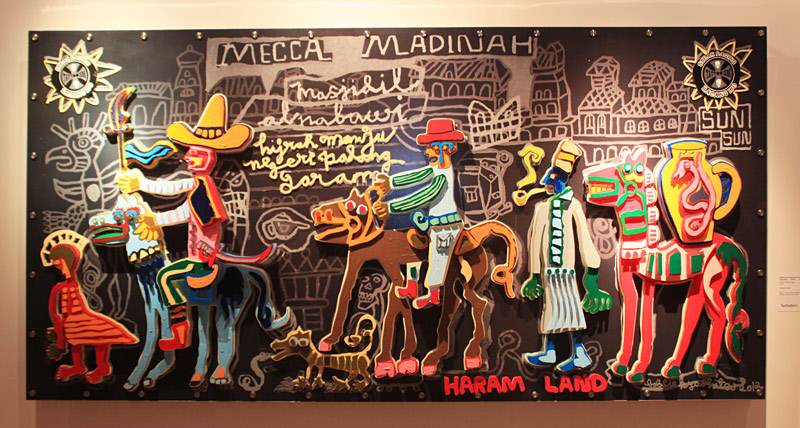 MECCA MADINAH
Masjidil
alnabawi
hijrah menuju
negeri padang
garam
SUN
SUN
HARAM LAND